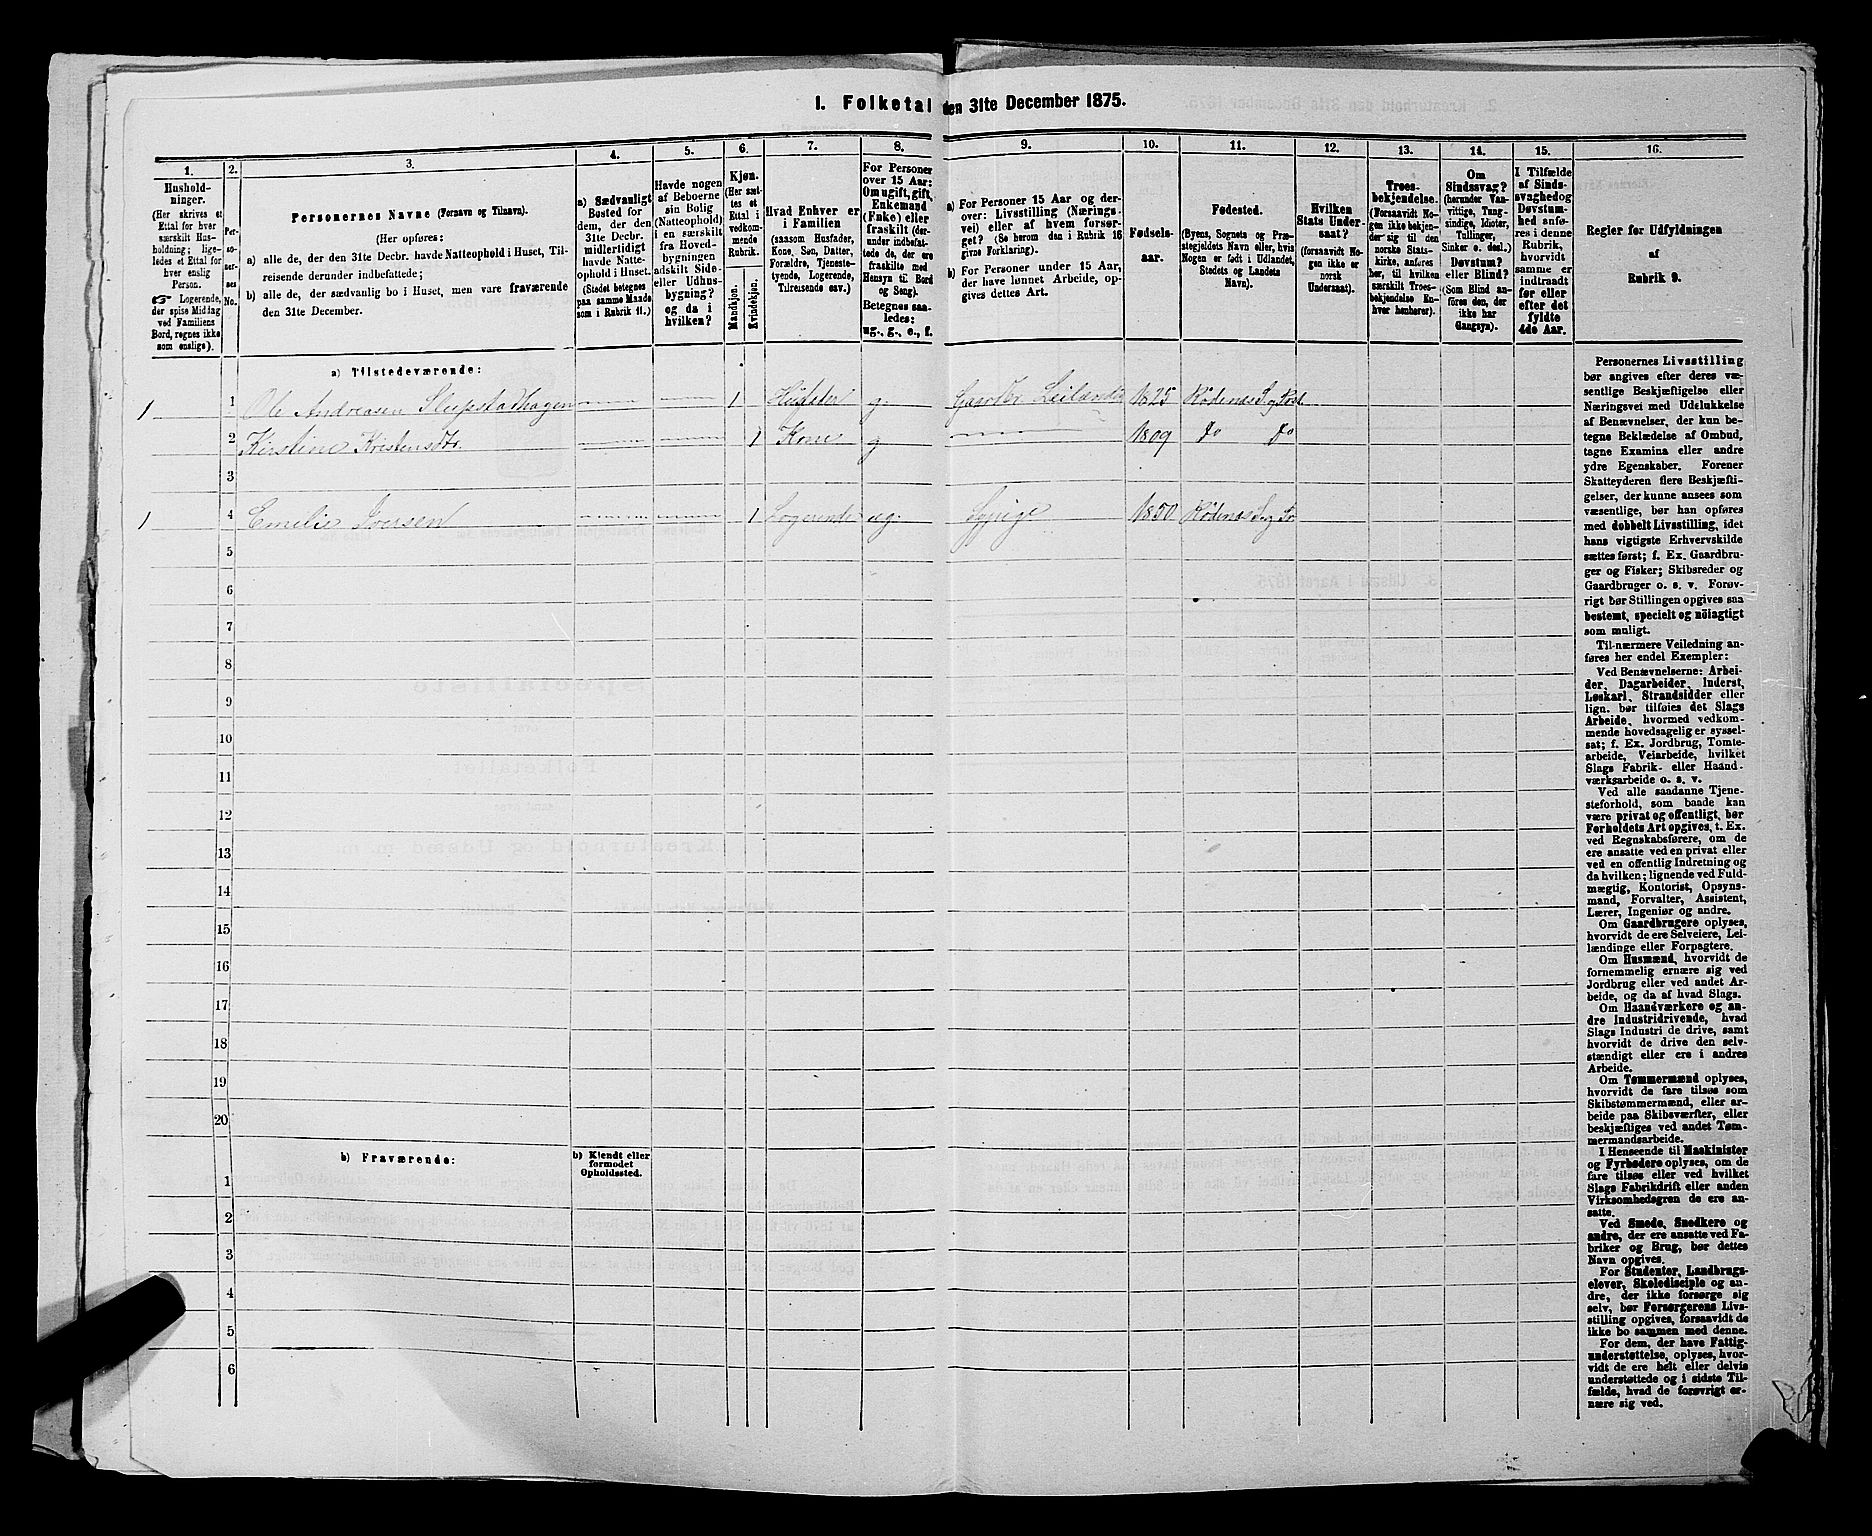 I. Folketal den 31te December 1875.
1. 2. 3. 4. 5. 6. 7. 8. 9. 10. 11. 12. 13. 14. 15. 16.
Hushold-
ninger.
(Her skrives et
Ettal for hver
særskilt Hus-
holdning; lige-
ledes et Ettal for
hver enslig
Person.
☞ Logerende,
der spise Middag
ved Familiens
Bord, regnes ikke
som enslige).
Per-
so-
ner-
nes
No.
Personernes Navne (Fornavn og Tilnavn).
(Her opføres:
a) alle de, der den 31te Decbr. havde Natteophold i Huset, Til-
reisende derunder indbefattede;
b) alle de, der sædvanlig bo i Huset, men vare fraværende
den 31te December.
a) Sædvanligt
Bosted for
dem, der den
31te Decbr.
midlertidigt
havde Natte-
ophold i Huset.
(Stedet betegnes
paa samme Maade
som i Rubrik 11.)
Havde nogen
af Beboerne
sin Bolig
(Natteophold)
i en særskilt
fra Hoved-
bygningen
adskilt Side-
eller Udhus-
bygning?
og da i
hvilken?
Kjøn.
(Her sæt-
tes et
Ettal i
vedkom-
mende
Rubrik.
Mandkjøn.
Kvindekjøn.
Hvad Enhver er
i Familien
(saasom Husfader,
Kone, Søn, Datter,
Forældre, Tjeneste-
tyende, Logerende,
Tilreisende osv.)
For Personer
over 15 Aar:
Om ugift, gift,
Enkemand
(Enke) eller
fraskilt (der-
under indbefat-
tede de, der ere
fraskilte med
Hensyn til Bord
og Seng).
Betegnes saa-
ledes:
ug., g., e., f.
a) For Personer 15 Aar og der-
over: Livsstilling (Nærings-
vei) eller af hvem forsør-
get? (Se herom den i Rubrik 16
givne Forklaring).
b) For Personer under 15 Aar,
der have lønnet Arbeide, op-
gives dettes Art.
Fødsels-
aar.
Fødested.
(Byens, Sognets og Præ-
stegjeldets Navn eller, hvis
Nogen er født i Udlandet,
Stedets og Landets
Navn).
Hvilken
Stats Under-
saat?
(forsaavidt No-
gen ikke er
norsk
Undersaat).
Troes-
bekjendelse.
(Forsaavidt No-
gen ikke bekjen-
der sig til den
norske Stats-
kirke, anføres
her, til hvilken
særskilt Troes-
bekjendelse En-
hver henhører).
Om
Sindssvag?
(herunder Van-
vittige, Tung-
sindige, Idioter,
Tullinger,
Sinker o. desl.)
Døvstum?
eller Blind?
(Som Blind an-
føres den, der
ikke har
Gangsyn).
I Tilfælde
af Sinds-
svaghed og
Døvstum-
hed anfø-
res i denne
Rubrik,
hvorvidt
samme er
indtraadt
før eller
efter det
fyldte
4de Aar.
Regler for Udfyldningen
af
Rubrik 9.
a) Tilstedeværende:
1 1 Ole Andreasen Slupstadhagen 1 Husfader g. Gaardbr. Leilænding 1825 Rødenæs S. og Præst.
2 Kirstine Kristensdtr. 1 Kone g 1809 do do
3
1 4 Emelie Iversen 1 Logerende ug. Sypige 1850 Rødenæs S. og Pr.
5
6
7
8
9
10
11
12
13
14
15
16
17
18
19
20
b) Fraværende:
b) Kjendt eller
formodet
Opholdssted.
1
2
3
4
5
6
Personernes Livsstilling
bør angives efter deres væ-
sentlige Beskjæftigelse eller
Næringsvei med Udelukkelse
af Benævnelser, der kun be-
tegne Beklædelse af Ombud,
tagne Examina eller andre
ydre Egenskaber. Forener
Skatteyderen flere Beskjæfti-
gelser, der kunne ansees som
væsentlige, bør han opføres
med dobbelt Livsstilling, idet
hans vigtigste Erhvervskilde
sættes først; f. Ex. Gaardbru-
ger og Fisker; Skibsreder og
Gaardbruger o. s. v. Forøv-
rigt bør Stillingen opgives saa
bestemt, specielt og nöiagtigt
som muligt.
Til nærmere Veiledning an-
føres her endel Exempler:
Ved Benævnelserne: Arbei-
der, Dagarbeider, Inderst,
Løskarl, Strandsidder eller
lign. bør tilføies det Slags
Arbeide, hvormed vedkom-
mende hovedsagelig er syssel-
sat; f. Ex. Jordbrug, Tomte-
arbeide, Veiarbeide, hvilket
Slags Fabrik- eller Haand-
værksarbeide o. s. v.
Ved alle saadanne Tjene-
steforhold, som baade kan
være privat og offentligt, bør
Forholdets Art opgives, t. Ex.
ved Regnskabsførere, om de
ere ansatte ved en privat eller
ved en offentlig Indretning og
da hvilken; lignende ved Fuld-
mægtig, Kontorist, Opsyns-
mand, Forvalter, Assistent,
Lærer, Ingeniør og andre.
Om Gaardbrugere oplyses,
hvorvidt de ere Selveiere, Lei-
lændinge eller Forpagtere.
Om Husmænd, hvorvidt de
fornemmelig ernære sig ved
Jordbrug eller ved andet Ar-
beide, og da af hvad Slags.
Om Haandværkere og an-
dre Industridrivende, hvad
Slags Industri de drive, samt
hvorvidt de drive den selv-
stændigt eller ere i andres
Arbeide.
Om Tømmermænd oplyses,
hvorvidt de fare tilsøs som
Skibstømmermænd, eller ar-
beide paa Skibsværfter, eller
beskjæftiges ved andet Tøm-
mermandsarbeide.
I Henseende til Maskinister
og Fyrbødere oplyses, om de
fare tilsøs eller ved hvilket
Slags Fabrikdrift eller anden
Virksomhedsgren de ere an-
satte.
Ved Smede, Snedkere og
andre, der ere ansatte ved Fa-
briker og Brug, bør dettes
Navn opgives.
For Studenter, Landbrugs-
elever, Skoledisciple og an-
dre, der ikke forsørge sig
selv, bør Forsørgerens Livs-
stilling opgives, forsaavidt de
ikke bo sammen med denne.
For dem, der have Fattig-
understøttelse, oplyses, hvor-
vidt de ere helt eller delvis
understøttede og i sidste Til-
fælde, hvad de forøvrigt er-
nære sig ved.